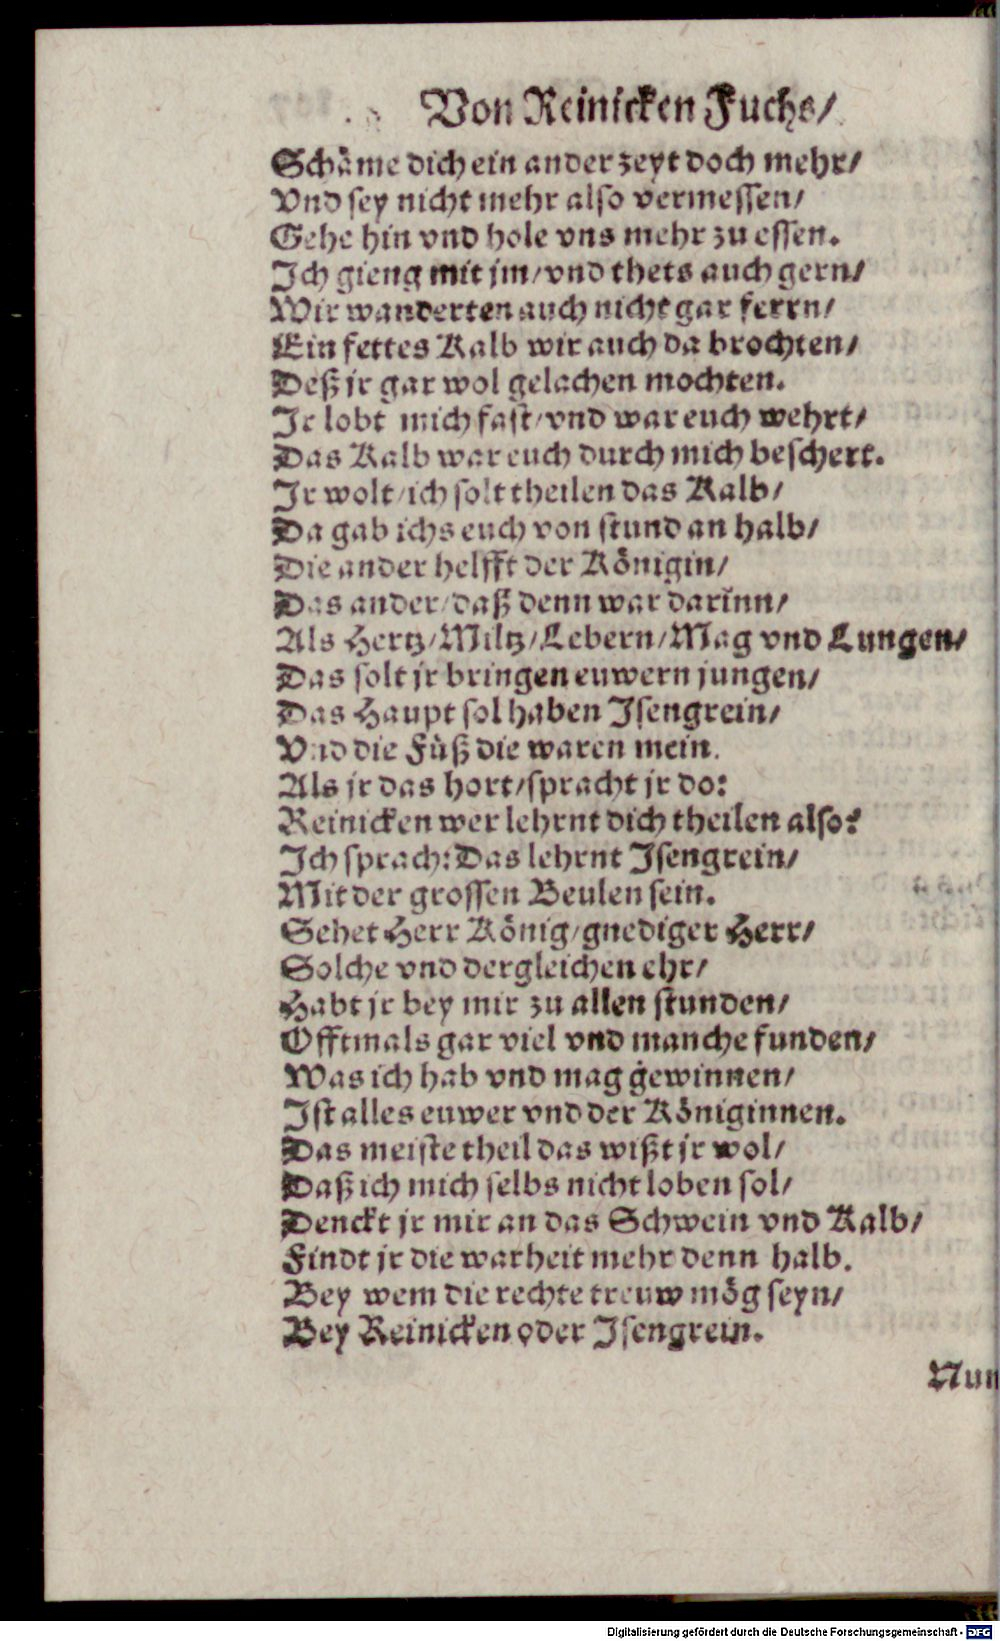 Von Reinicken Fuchs/
Schäme dich ein ander zeyt doch mehr/
Vnd sey nicht mehr also vermessen/
Gehe hin vnd hole vns mehr zu essen.
Ich gieng mit jm/vnd thets auch gern/
Wir wanderten auch nicht gar ferrn/
Ein fettes Kalb wir auch da brochten/
Deß jr gar wol gelachen mochten.
Ir lobt mich fast/vnd war euch wehrt/
Das Kalb war euch durch mich beschert.
Ir wolt/ich solt theilen das Kalb/
Da gab ichs euch von stund an halb/
Die ander helfft der Königin/
Das ander/daß denn war darinn/
Als Hertz/Miltz/Lebern/Mag vnd Lungen/
Das solt jr bringen euwern jungen/
Das Haupt sol haben Isengrein/
Vnd die Füß die waren mein.
Als jr das hort/spracht jr do:
Reinicken wer lehrnt dich theilen also?
Ich sprach: Das lehrnt Isengrein/
Mit der grossen Beulen sein.
Sehet Herr König/gnediger Herr/
Solche vnd dergleichen ehr/
Habt jr bey mir zu allen stunden/
Offtmals gar viel vnd manche funden/
Was ich hab vnd mag gewinnen/
Ist alles euwer vnd der Königinnen.
Das meiste theil das wißt jr wol/
Daß ich mich selbs nicht loben sol/
Denckt jr mir an das Schwein vnd Kalb/
Findt jr die warheit mehr denn halb.
Bey wem die rechte treuw mög seyn/
Bey Reinicken oder Isengrein.
Nun
Digitalisierung gefördert durch die Deutsche Forschungsgemeinschaft - DFG